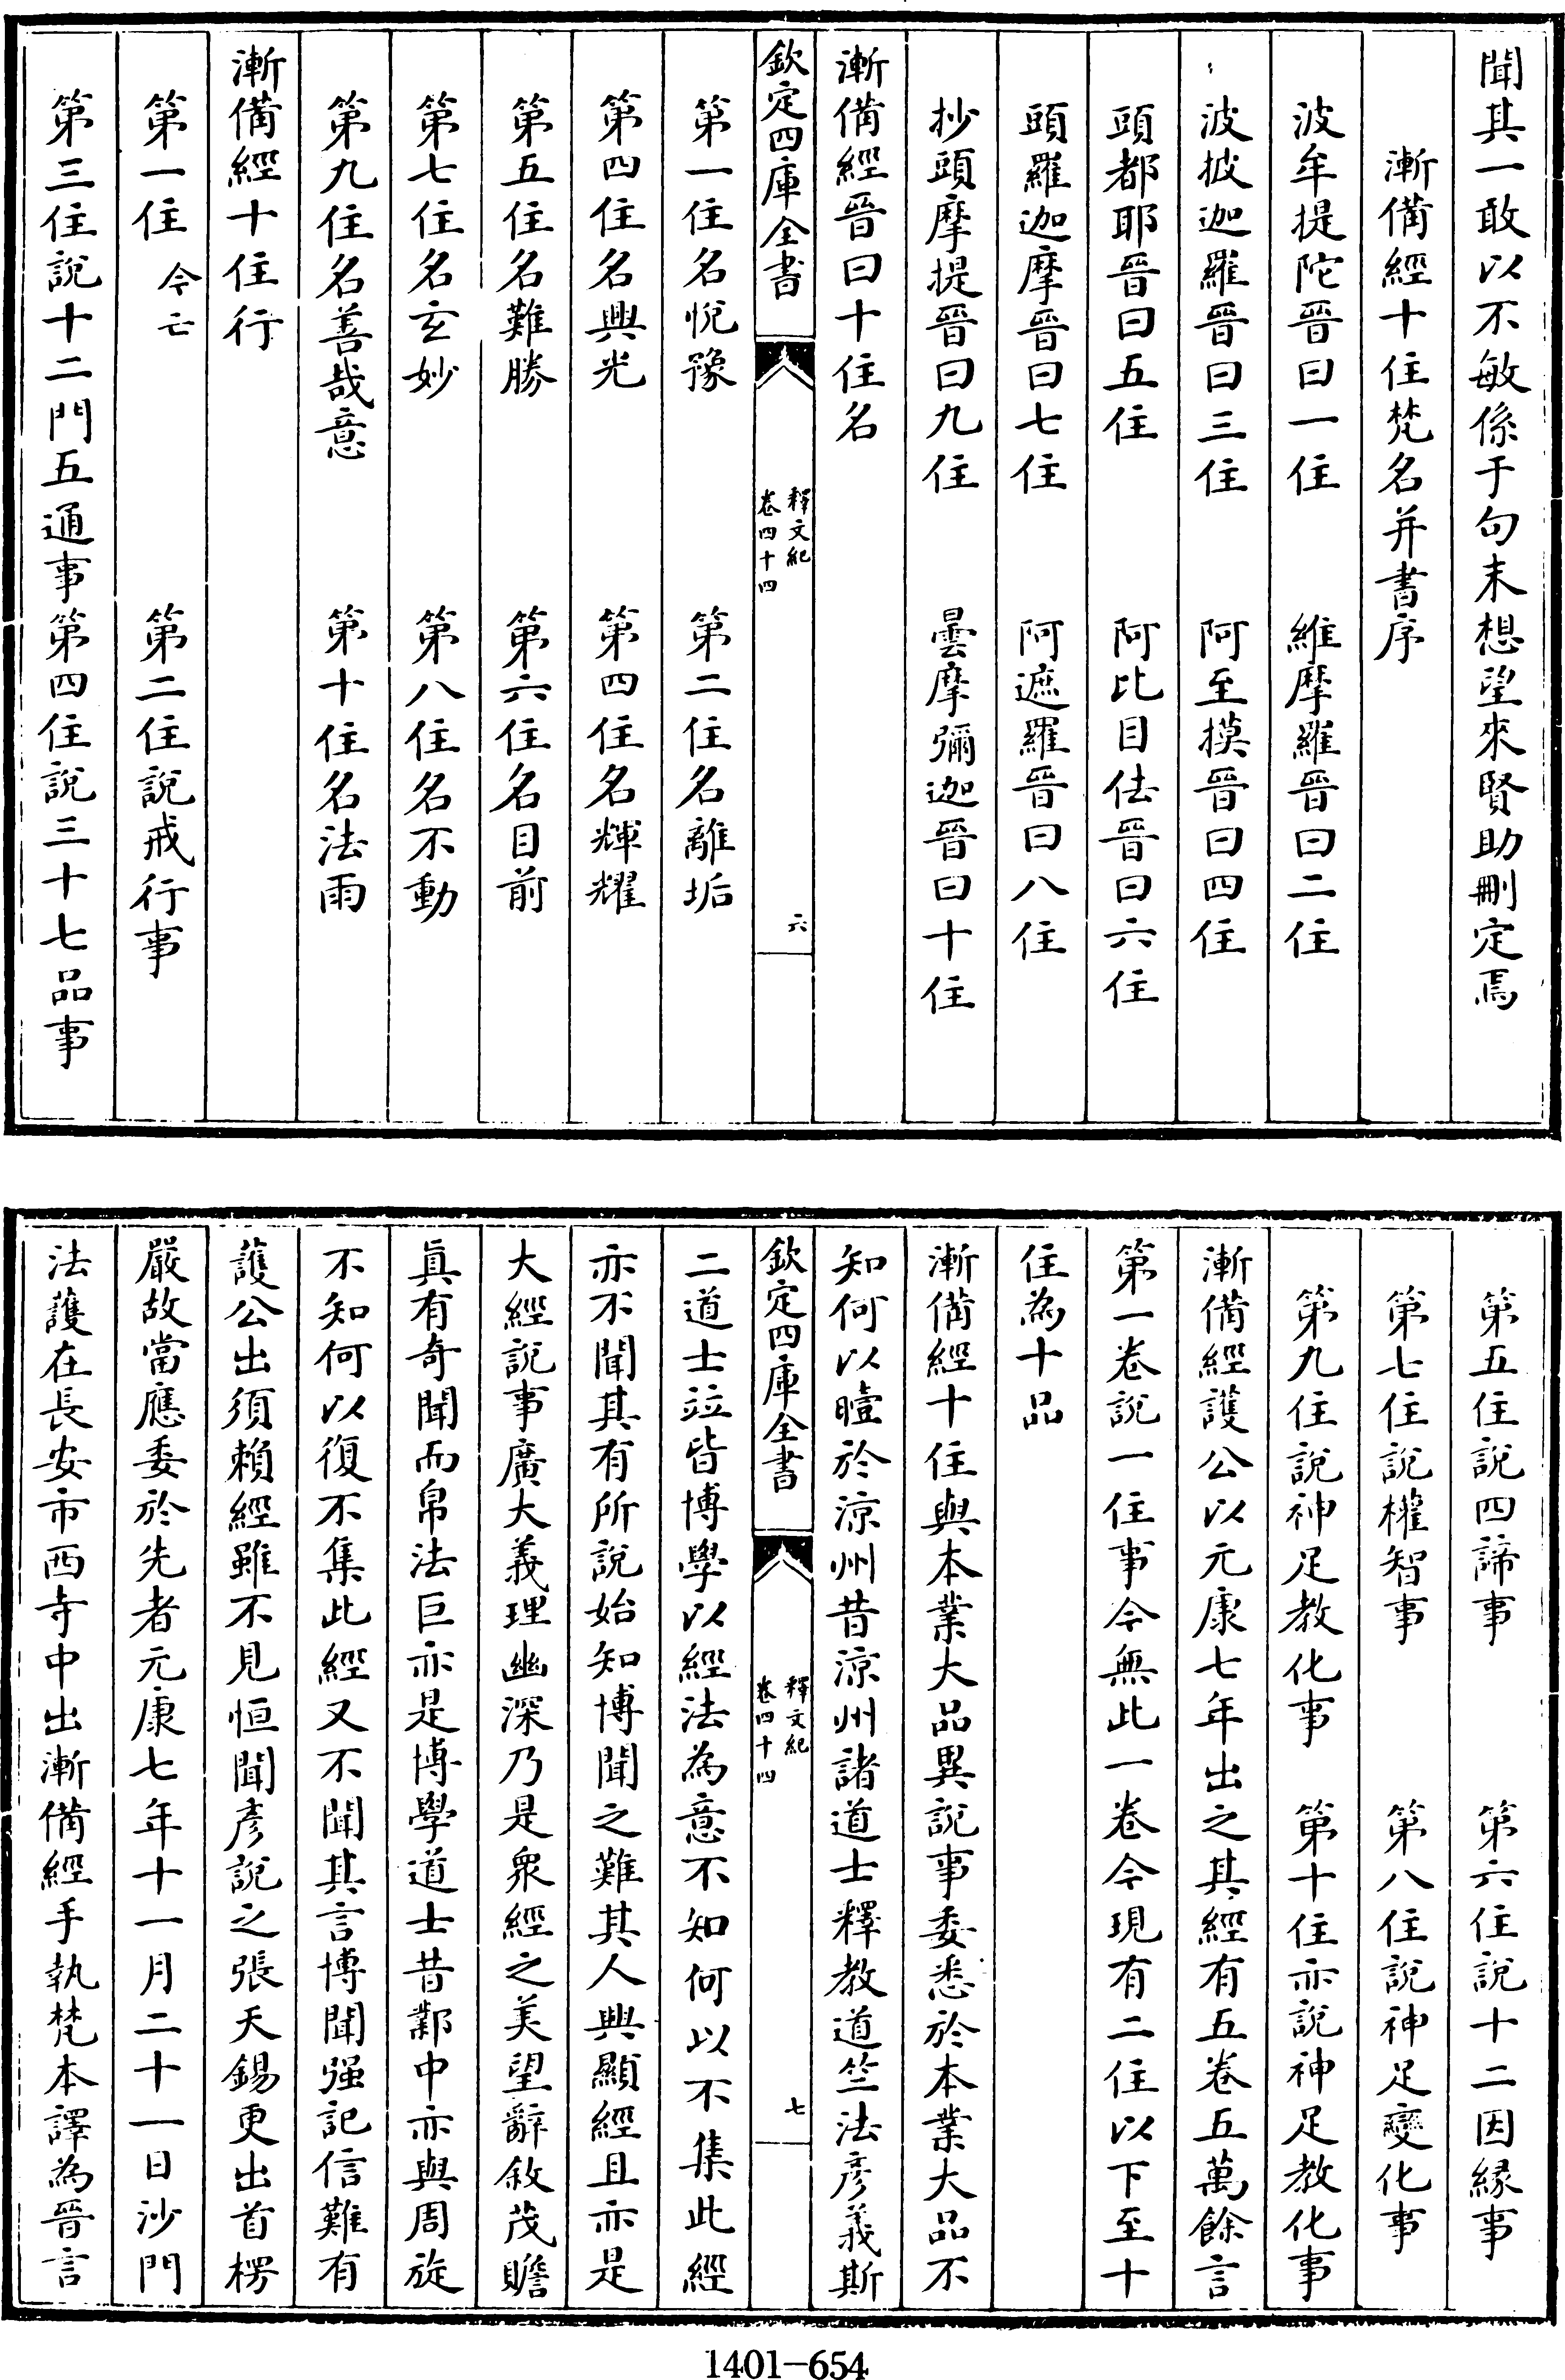 聞其一敢以不敏係于句末想望來賢助刪定焉
漸備經十住梵名并書序
波牟提陀晉曰一住　維摩羅晉曰二住
波披迦羅晉曰三住　阿至摸晉曰四住
頭都耶晉曰五住　阿比目佉晉曰六住
頭羅迦摩晉曰七住　阿遮羅晉曰八住
抄頭摩提晉曰九住　曇摩彌迦晉曰十住
漸備經晉曰十住名
欽定四庫全書　釋文紀卷四十四　六
第一住名悅豫　第二住名離垢
第四住名興光　第四住名輝耀
第五住名難勝　第六住名目前
第七住名玄妙　第八住名不動
第九住名善哉意　第十住名法雨
漸備經十住行
第一住今亡　第二住說戒行事
第三住說十二門五通事第四住說三十七品事
第五住說四諦事　第六住說十二因緣事
第七住說權智事　第八住說神足變化事
第九住說神足教化事　第十住亦說神足教化事
漸備經護公以元康七年出之其經有五卷五萬餘言
第一卷說一住事今無此一卷今現有二住以下至十
住為十品
漸備經十住與本業大品異說事委悉於本業大品不
知何以曀於涼州昔涼州諸道士釋教道竺法彥義斯
欽定四庫全書　釋文紀卷四十四　七
二道士竝皆博學以經法為意不知何以不集此經
亦不聞其有所說始知博聞之難其人興顯經且亦是
大經說事廣大義理幽深乃是衆經之美望辭敘茂贍
眞有奇聞而帛法巨亦是博學道士昔鄴中亦與周旋
不知何以復不集此經又不聞其言博聞强記信難有
護公出須賴經雖不見恒聞彥說之張天錫更出首楞
嚴故當應委於先者元康七年十一月二十一日沙門
法護在長安市西寺中出漸備經手執梵本譯為晉言
1401-654